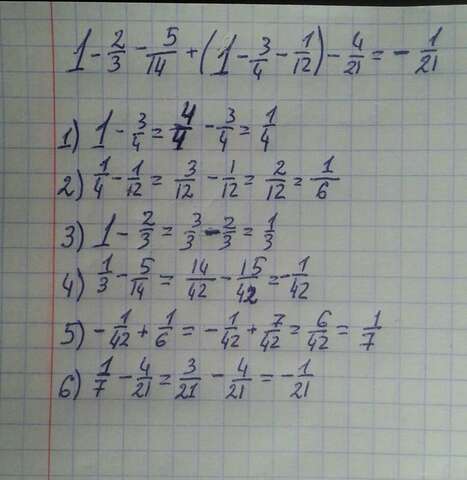 1 - 2/3 - 5/14 + (1 - 3/4 - 1/12) - 4/21 = - 1/21
1) 1 - 3/4 = 4/4 - 3/4 = 1/4
2) 1/4 - 1/12 = 3/12 - 1/12 = 2/12 = 1/6
3) 1 - 2/3 = 3/3 - 2/3 = 1/3
4) 1/3 - 5/14 = 14/42 - 15/42 = - 1/42
5) - 1/42 + 1/6 = - 1/42 + 7/42 = 6/42 = 1/7
6) 1/7 - 4/21 = 3/21 - 4/21 = - 1/21